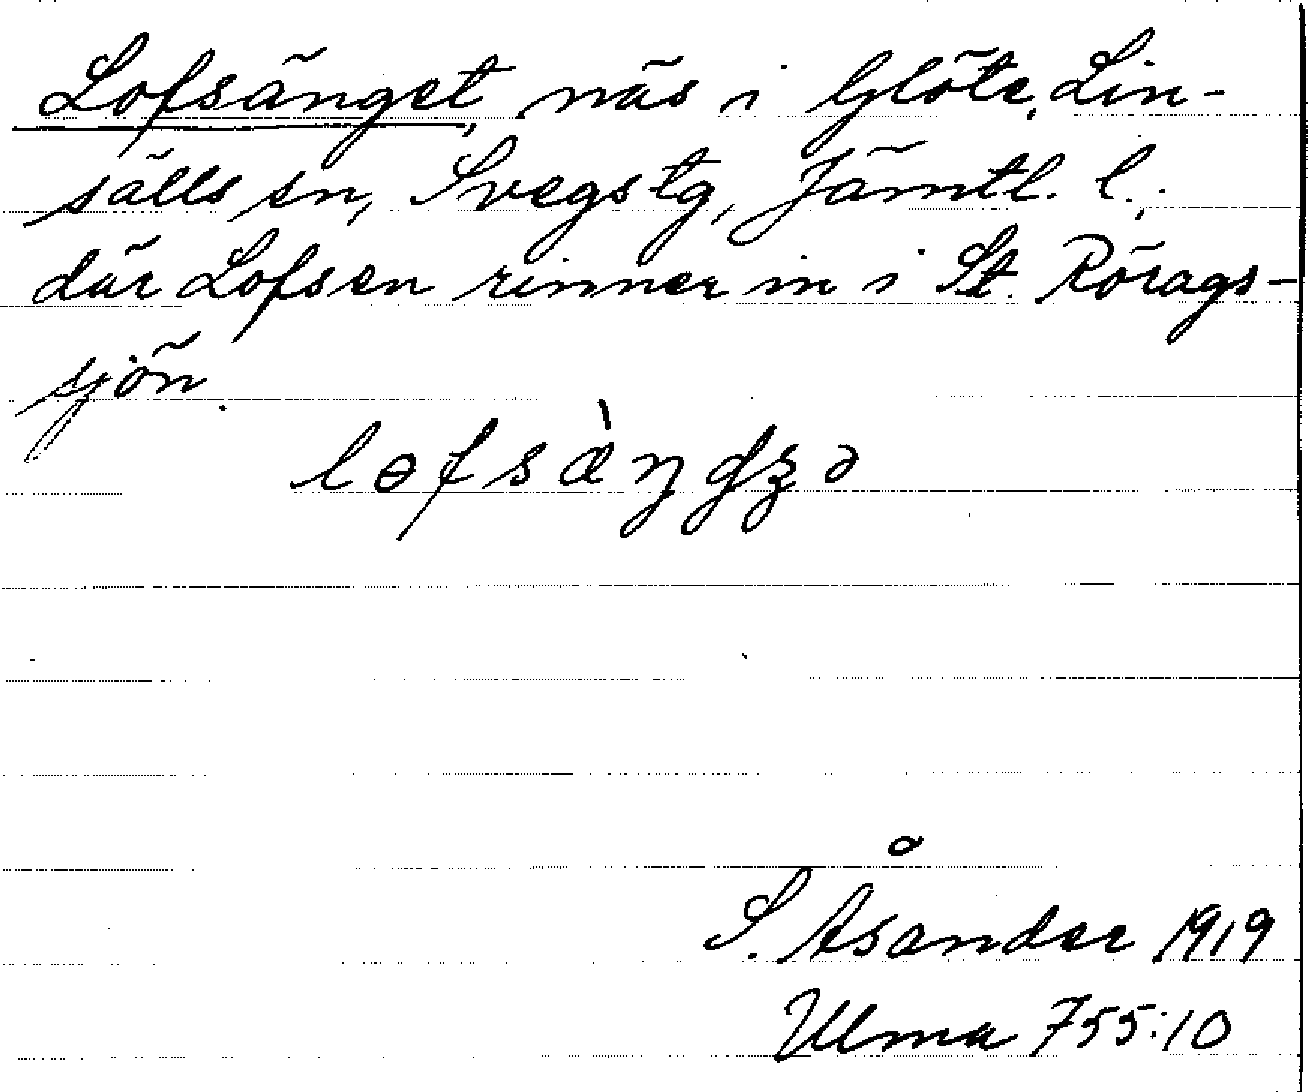 Lofsänget, näs i Glöte, Lin-
sälls sn, Svegs tg, Jämtl. l.,
där Lofsen rinner in i St. Rörags-
sjön.
lɵfsæ̀ŋgʒə
S. Åsander 1919
Ulma 755:10